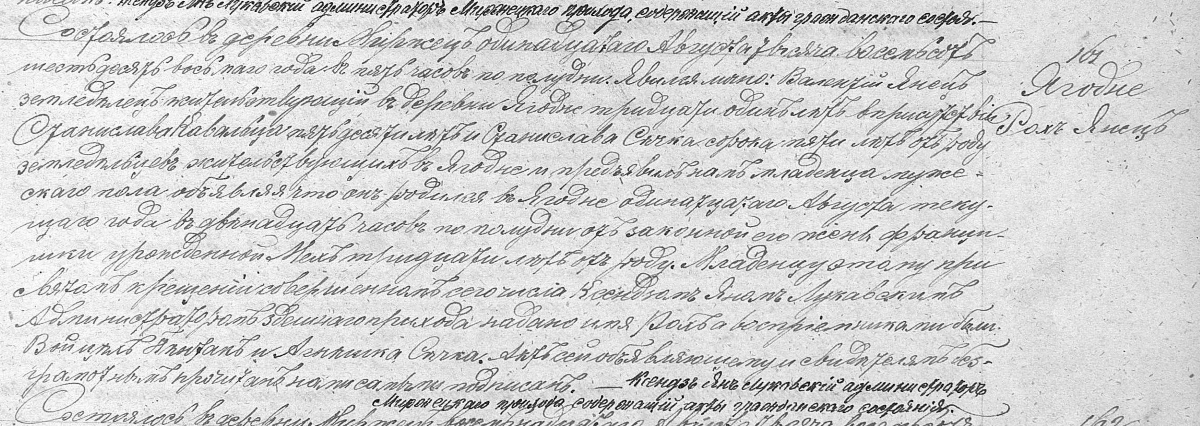 Ксендзъ Янъ Лукавскій администраторъ Миржецкаго прихода, содержащій акты гражданскаго состоя. —
Состоялось въ деревни Миржецъ одинадцатаго Августа тысяча восемьсотъ
161
Ягодне
Рохъ Янецъ
шестьдесятъ восьмаго года въ пять часовъ по полудни. Явился лично: Валентій Янецъ
земледелецъ жительствующій въ деревни Ягодне тридцати одинъ летъ въ присутствіи
Станислава Ковальца пятьдесяти летъ и Станислава Сѣчка сорока пяти летъ отъ роду
земледельцевъ жительствующихъ въ Ягодне и предъявилъ намъ младенца муже-
скаго пола объявляя что онъ родился въ Ягодне одинатцатаго Августа теку-
щаго года въ двенадцать часовъ по полудни отъ законной его жены Францы-
шки урожденной Мехъ тридцати летъ отъ роду. Младенцу этому при
святомъ крещеніи совершенномъ сего числа Ксендзомъ Яномъ Лукавскимъ
Администраторомъ здешнаго прихода надано имя Рохъ а воспріемниками были
Войцехъ и Агнешка Сечка. Актъ сей объявляющему и свидетелямъ без-
грамотнымъ прочитанъ нами самыми подписанъ. — Ксендзъ Янъ Лукавскій администраторъ
Миржецкаго прихода, содержащій акты гражданскаго состоянія.
Состоялось въ деревни Миржецъ
162